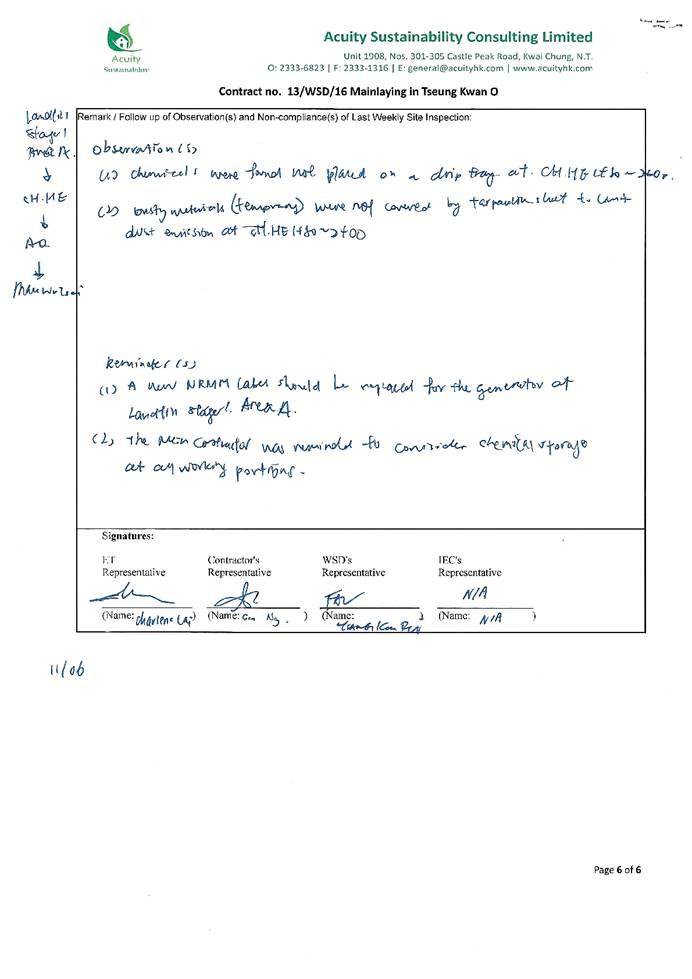 Acuity
Sustainability
Acuity Sustainability Consulting Limited
Unit 1908, Nos. 301-305 Castle Peak Road, Kwai Chung, N.T.
O: 2333-6823 | F: 2333-1316 | E: general@acuityhk.com | www.acuityhk.com
Contract no. 13/WSD/16 Mainlaying in Tseung Kwan O
Landfill
Stage 1
Area A.
↓
CH.HE
↓
↓
Remark / Follow up of Observation(s) and Non-compliance(s) of Last Weekly Site Inspection:
Observation(s)
(1) Chemicals were found not placed on a drip tray at CH.HE
(2) Dusty materials (temporary) were not covered by tarpaulin sheet to limit
dust emission at CH.HE 1+80~2+00
Reminder(s)
(1) A new NRMM Label should be replaced for the generator at
Landfill stage 1. Area A.
(2) The Main Contractor was reminded to consider chemical storage
at all working portions.
Signatures:
ET
Representative
Contractor's
Representative
WSD's
Representative
IEC's
Representative
N/A
(Name: Charlene Lai)
(Name: Ng. )
(Name: )
(Name: N/A )
11/06
Page 6 of 6